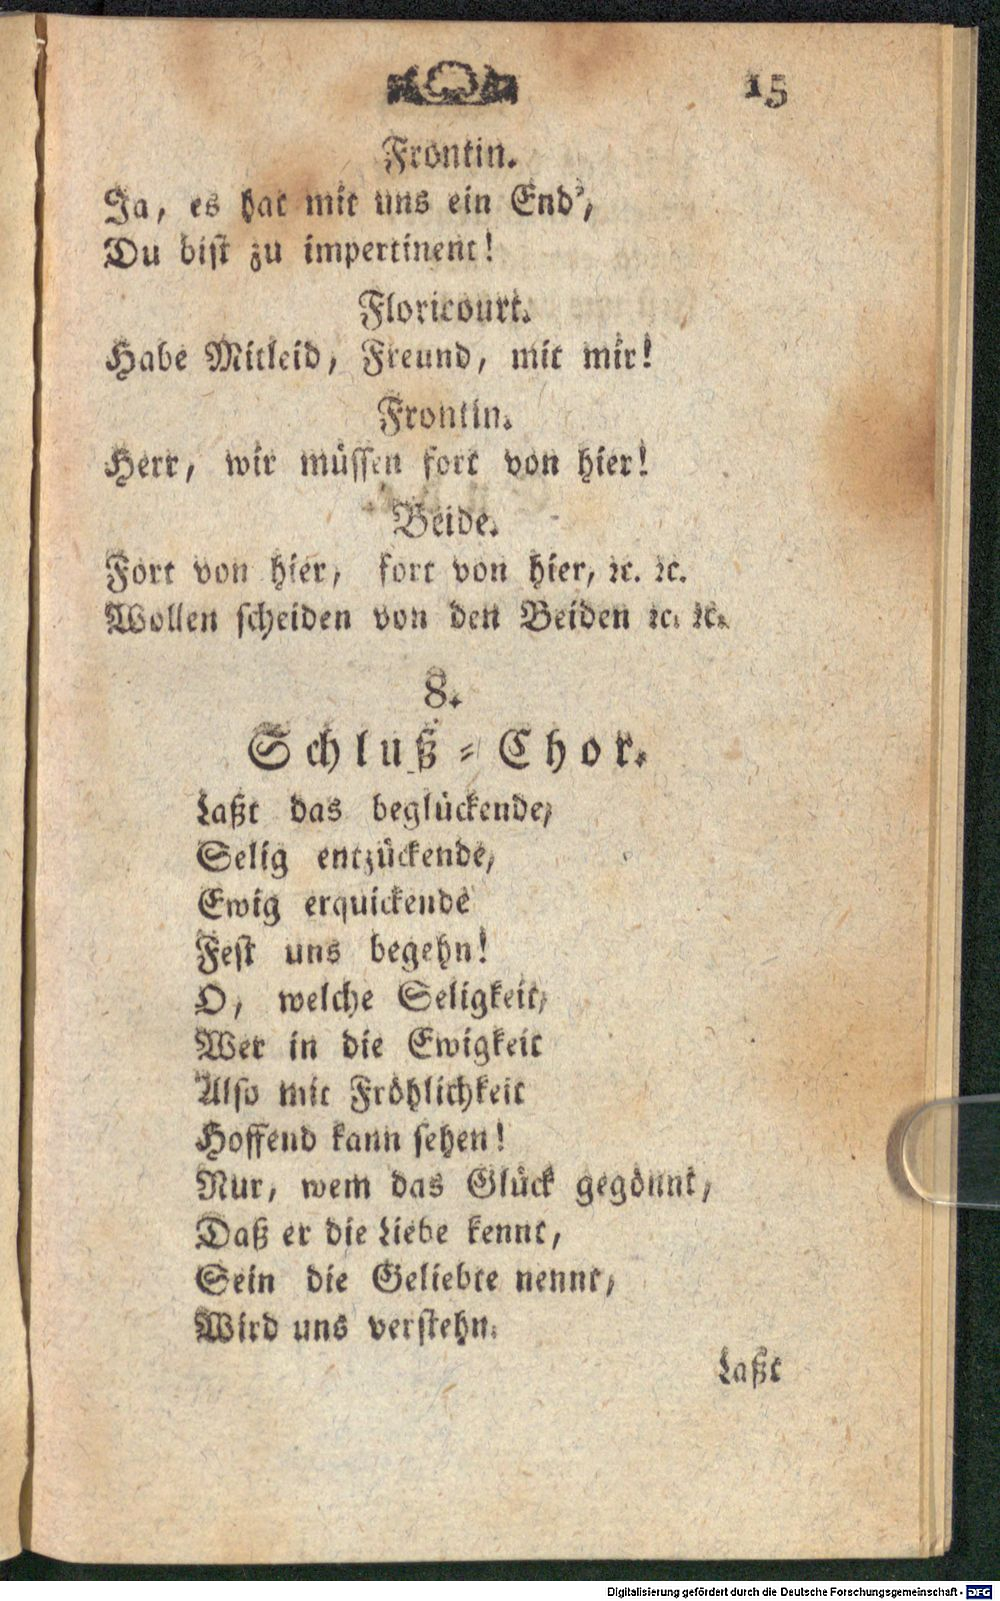 15
Frontin.
Ja, es hat mit uns ein End',
Du bist zu impertinent!
Floricourt.
Habe Mitleid, Freund, mit mir!
Frontin.
Herr, wir müssen fort von hier!
Beide.
Fort von hier, fort von hier, ꝛc. ꝛc.
Wollen scheiden von den Beiden ꝛc. ꝛc.
8.
Schluß-Chor.
Laßt das beglückende,
Selig entzückende,
Ewig erquickende
Fest uns begehn!
O, welche Seligkeit,
Wer in die Ewigkeit
Also mit Fröhlichkeit
Hoffend kann sehen!
Nur, wem das Glück gegönnt,
Daß er die Liebe kennt,
Sein die Geliebte nennt,
Wird uns verstehn.
Laßt
Digitalisierung gefördert durch die Deutsche Forschungsgemeinschaft - DFG